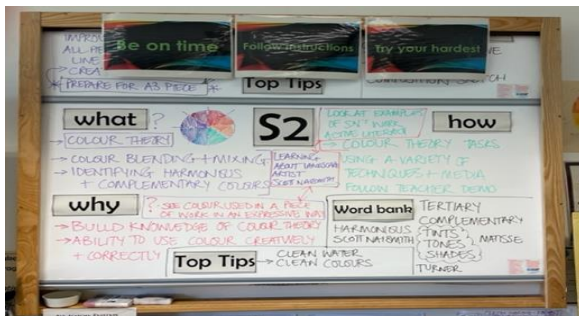 Be on time
Follow instructions
Try your hardest
LINE
PREPARE FOR A3 PIECE
Top Tips
what ?
COLOUR THEORY
→ COLOUR BLENDING + MIXING
→ IDENTIFYING HARMONIOUS
+ COMPLEMENTARY COLOURS
S2
LEARNING
ABOUT
ARTIST
SCOTT NAISMITH
how
LOOK AT EXAMPLES
OF WORK
→ COLOUR THEORY TASKS
USING A VARIETY OF
TECHNIQUES + MEDIA
FOLLOW TEACHER DEMO
why
? SEE COLOUR USED IN A PIECE
OF WORK IN AN EXPRESSIVE WAY
→ BUILD KNOWLEDGE OF COLOUR THEORY
→ ABILITY TO USE COLOUR CREATIVELY
+ CORRECTLY
Word bank
HARMONIOUS
SCOTT NAISMITH
TERTIARY
COMPLEMENTARY
TINTS
TONES
SHADES
MATISSE
TURNER
Top Tips
→ CLEAN WATER
→ CLEAN COLOURS